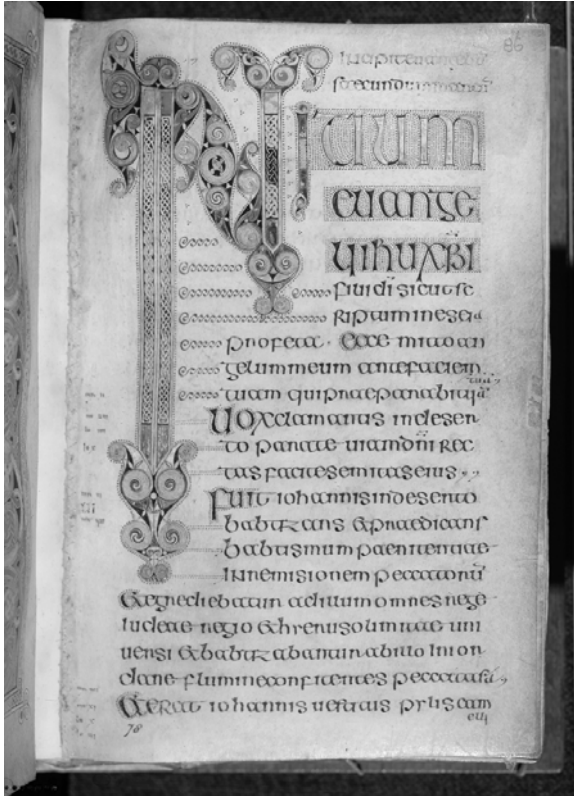 86
secundum marcū
INITIUM
EUANGE
LII IHU XBI
filii dī sicut sc
riptum in esaia
profeta · Ecce mitto an
gelum meum ante faciem
tuam qui praeparabit uiā
tuā
UOX clamantis in deser
to parate uiam dn̄i rec
tas facite semitas eius
Fuit iohannis in deserto
babtizans & praedicans
babtismum paenitentiae
in remisionem peccatorū
& egrediebatur ad illum omnes rege
iudeae regio & hierusolimitae uni
uersi & babtizabantur ab illo in ior
dane flumine confitentes peccata sua
& erat iohannis uestitus pylis cam
eli
78